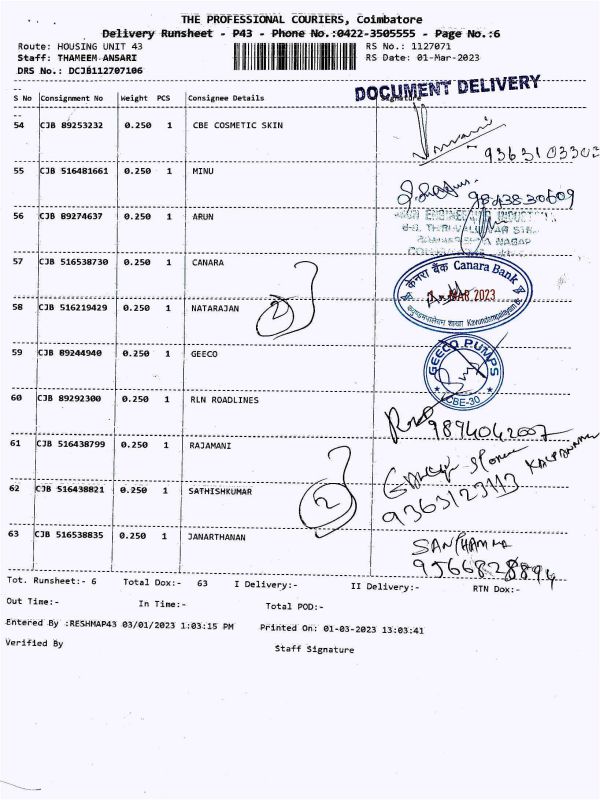 THE PROFESSIONAL COURIERS, Coimbatore
Delivery Runsheet - P43 - Phone No.:0422-3505555 - Page No.:6
Route: HOUSING UNIT 43 RS No.: 1127071
Staff: THAMEEM ANSARI RS Date: 01-Mar-2023
DRS No.: DCJB112707106
DOCUMENT DELIVERY
S No Consignment No Weight PCS Consignee Details Signature
54 CJB 89253232 0.250 1 CBE COSMETIC SKIN
9363103302
55 CJB 516481661 0.250 1 MINU
9843830609
56 CJB 89274637 0.250 1 ARUN
ENGINEERING
57 CJB 516538730 0.250 1 CANARA
केनरा बैंक Canara Bank
MAR 2023
58 CJB 516219429 0.250 1 NATARAJAN
2
59 CJB 89244940 0.250 1 GEECO
GEECO PUMPS
CBE-30
60 CJB 89292300 0.250 1 RLN ROADLINES
9894042007
61 CJB 516438799 0.250 1 RAJAMANI
62 CJB 516438821 0.250 1 SATHISHKUMAR
2
9363123113
63 CJB 516538835 0.250 1 JANARTHANAN
9566828894
Tot. Runsheet:- 6 Total Dox:- 63 I Delivery:- II Delivery:- RTN Dox:-
Out Time:- In Time:- Total POD:-
Entered By :RESHMAP43 03/01/2023 1:03:15 PM Printed On: 01-03-2023 13:03:41
Verified By Staff Signature